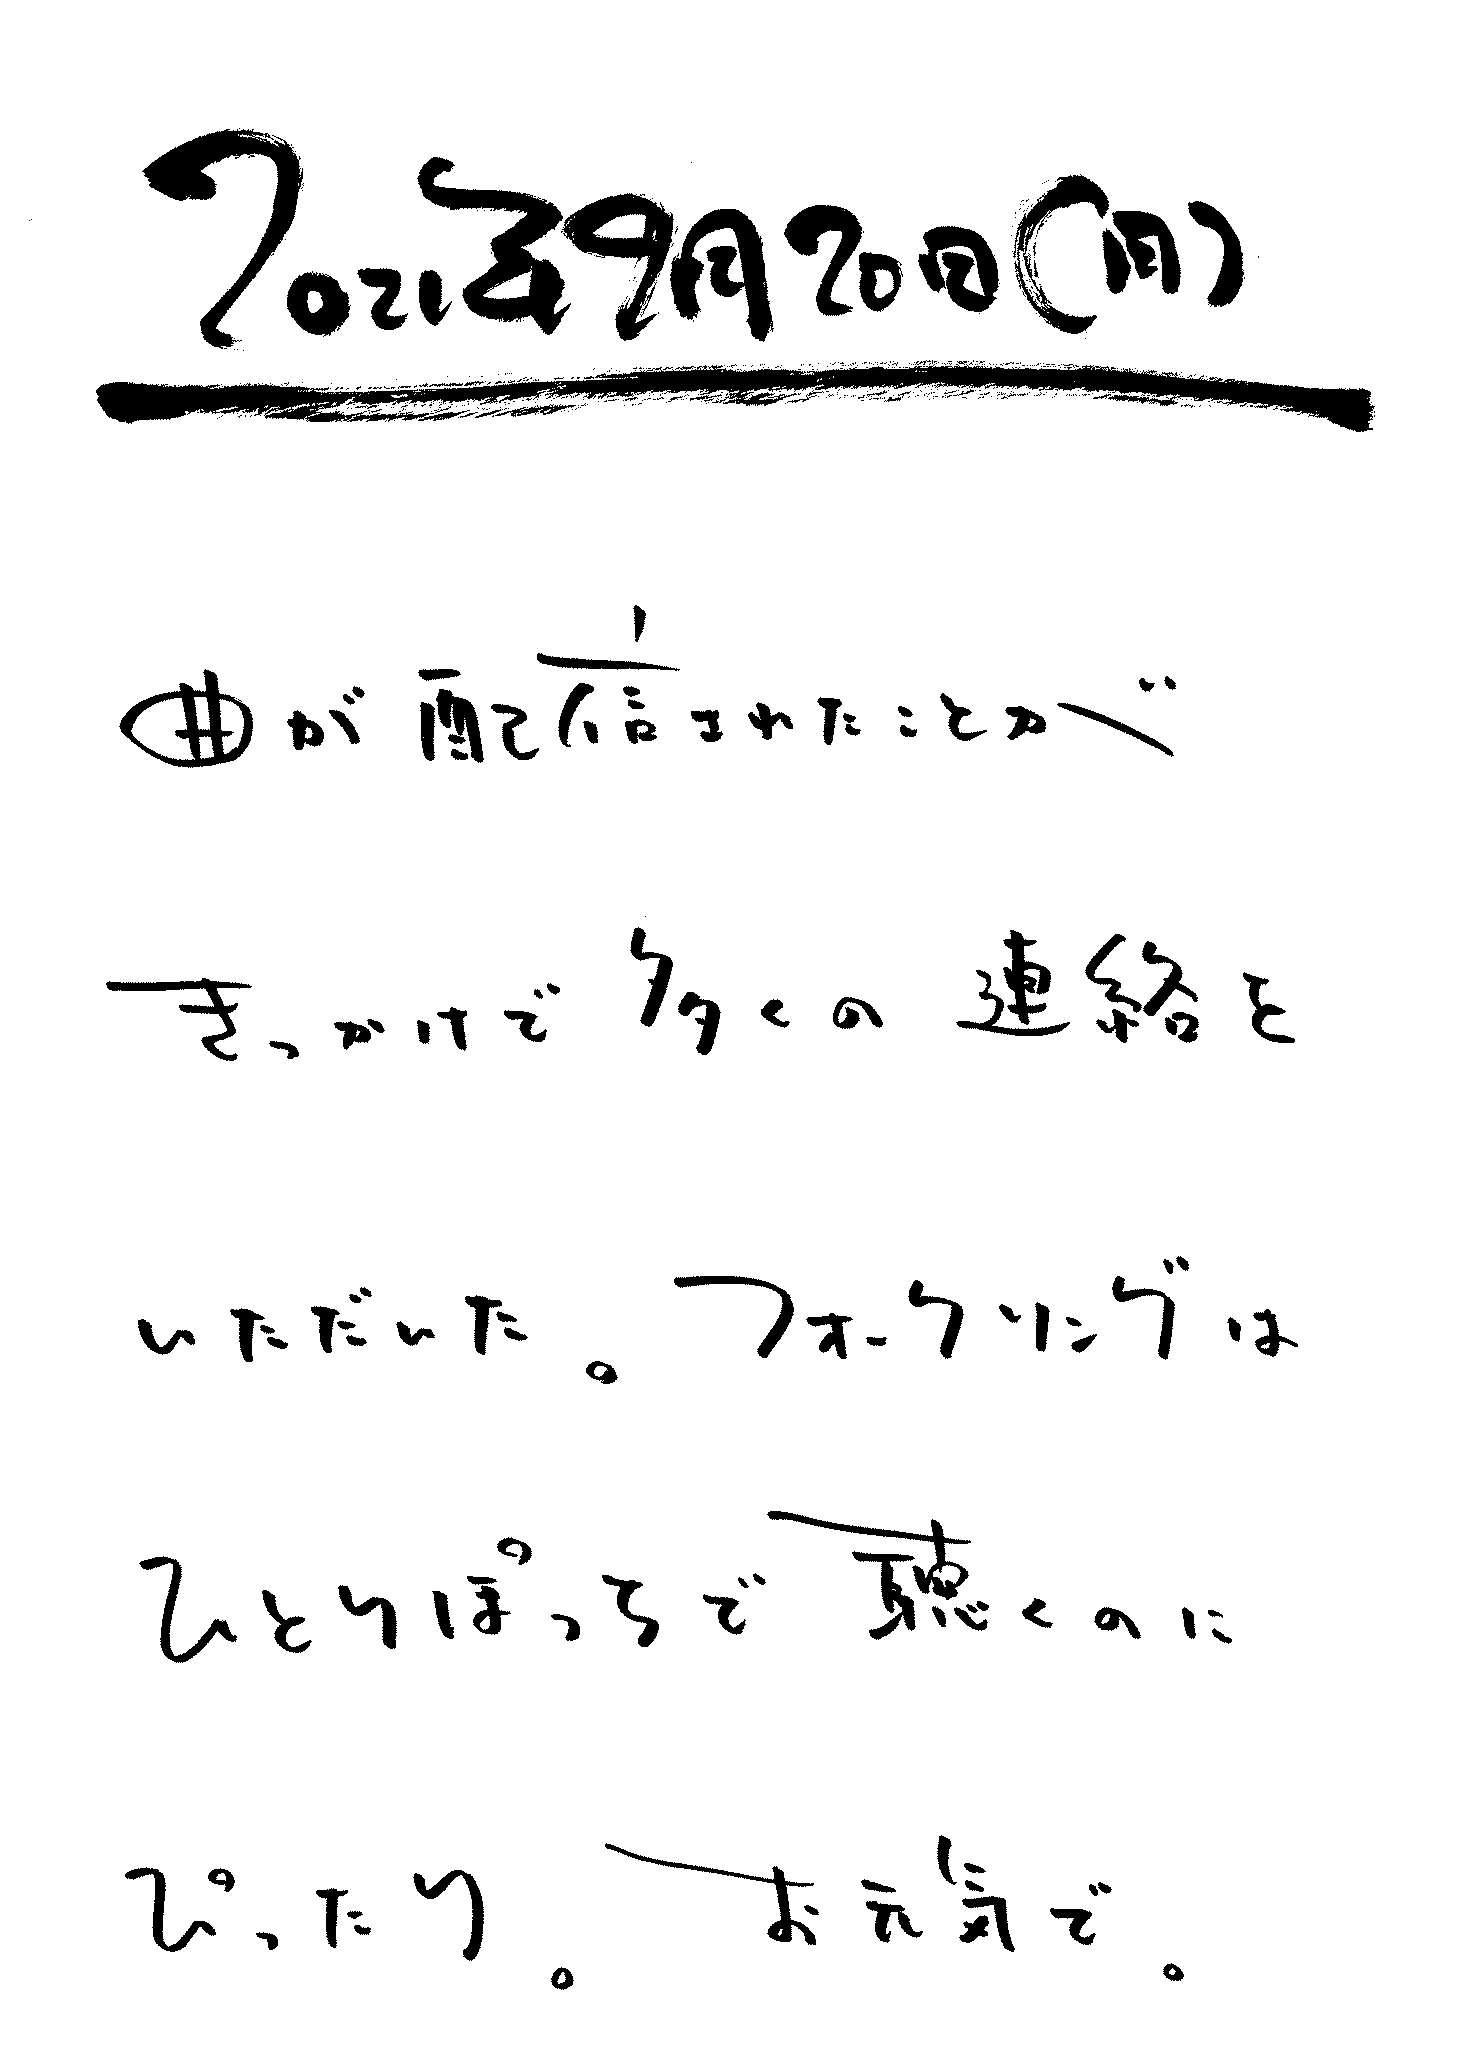 2021年9月20日(月)
曲が配信されたことが
きっかけで多くの連絡を
いただいた。フォークソングは
ひとりぼっちで聴くのに
ぴったり。お元気で。